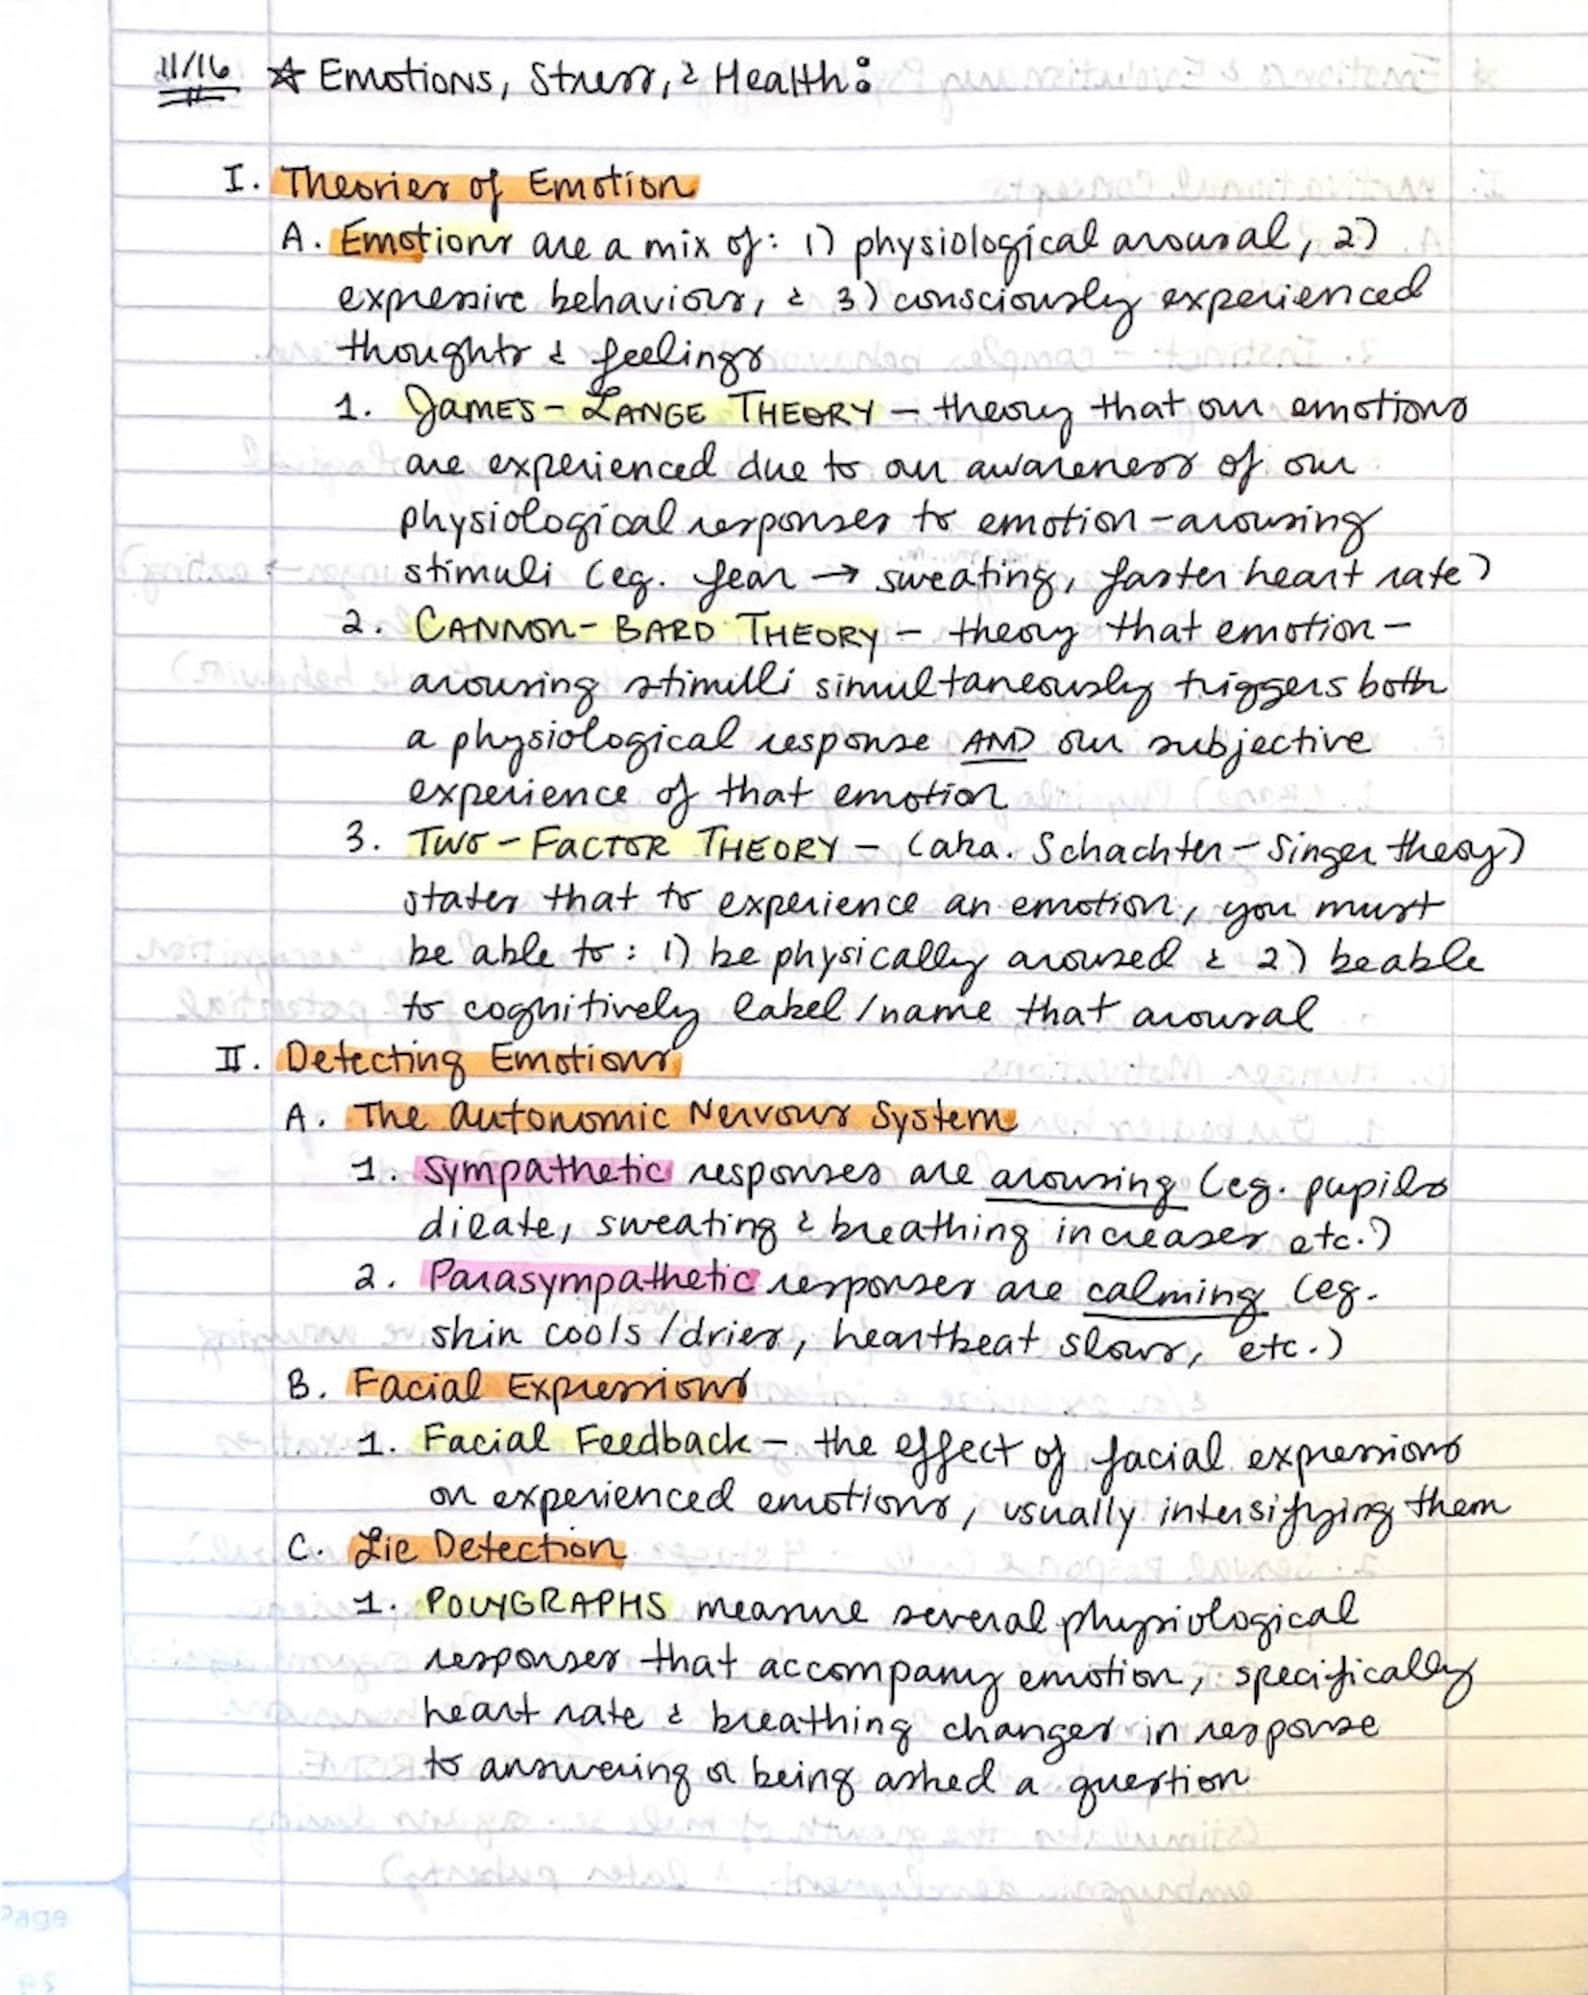 11/16 ☆ Emotions, Stress, & Health:
I. Theories of Emotion
A. Emotions are a mix of: 1) physiological arousal, 2)
expressive behaviors, & 3) consciously experienced
thoughts & feelings
1. JAMES-LANGE THEORY – theory that our emotions
are experienced due to our awareness of our
physiological responses to emotion-arousing
stimuli (eg. fear → sweating, faster heart rate)
2. CANNON-BARD THEORY – theory that emotion-
arousing stimilli simultaneously triggers both
a physiological response AND our subjective
experience of that emotion
3. TWO-FACTOR THEORY – (aka. Schachter-Singer theory)
states that to experience an emotion, you must
be able to: 1) be physically aroused & 2) be able
to cognitively label/name that arousal
II. Detecting Emotions
A. The Autonomic Nervous System
1. Sympathetic responses are arousing (eg. pupils
dilate, sweating & breathing increases etc.)
2. Parasympathetic responses are calming (eg.
skin cools/dries, heartbeat slows, etc.)
B. Facial Expressions
1. Facial Feedback – the effect of facial expressions
on experienced emotions, usually intensifying them
C. Lie Detection
1. POLYGRAPHS measure several physiological
responses that accompany emotion, specifically
heart rate & breathing changes in response
to answering or being asked a question
Page